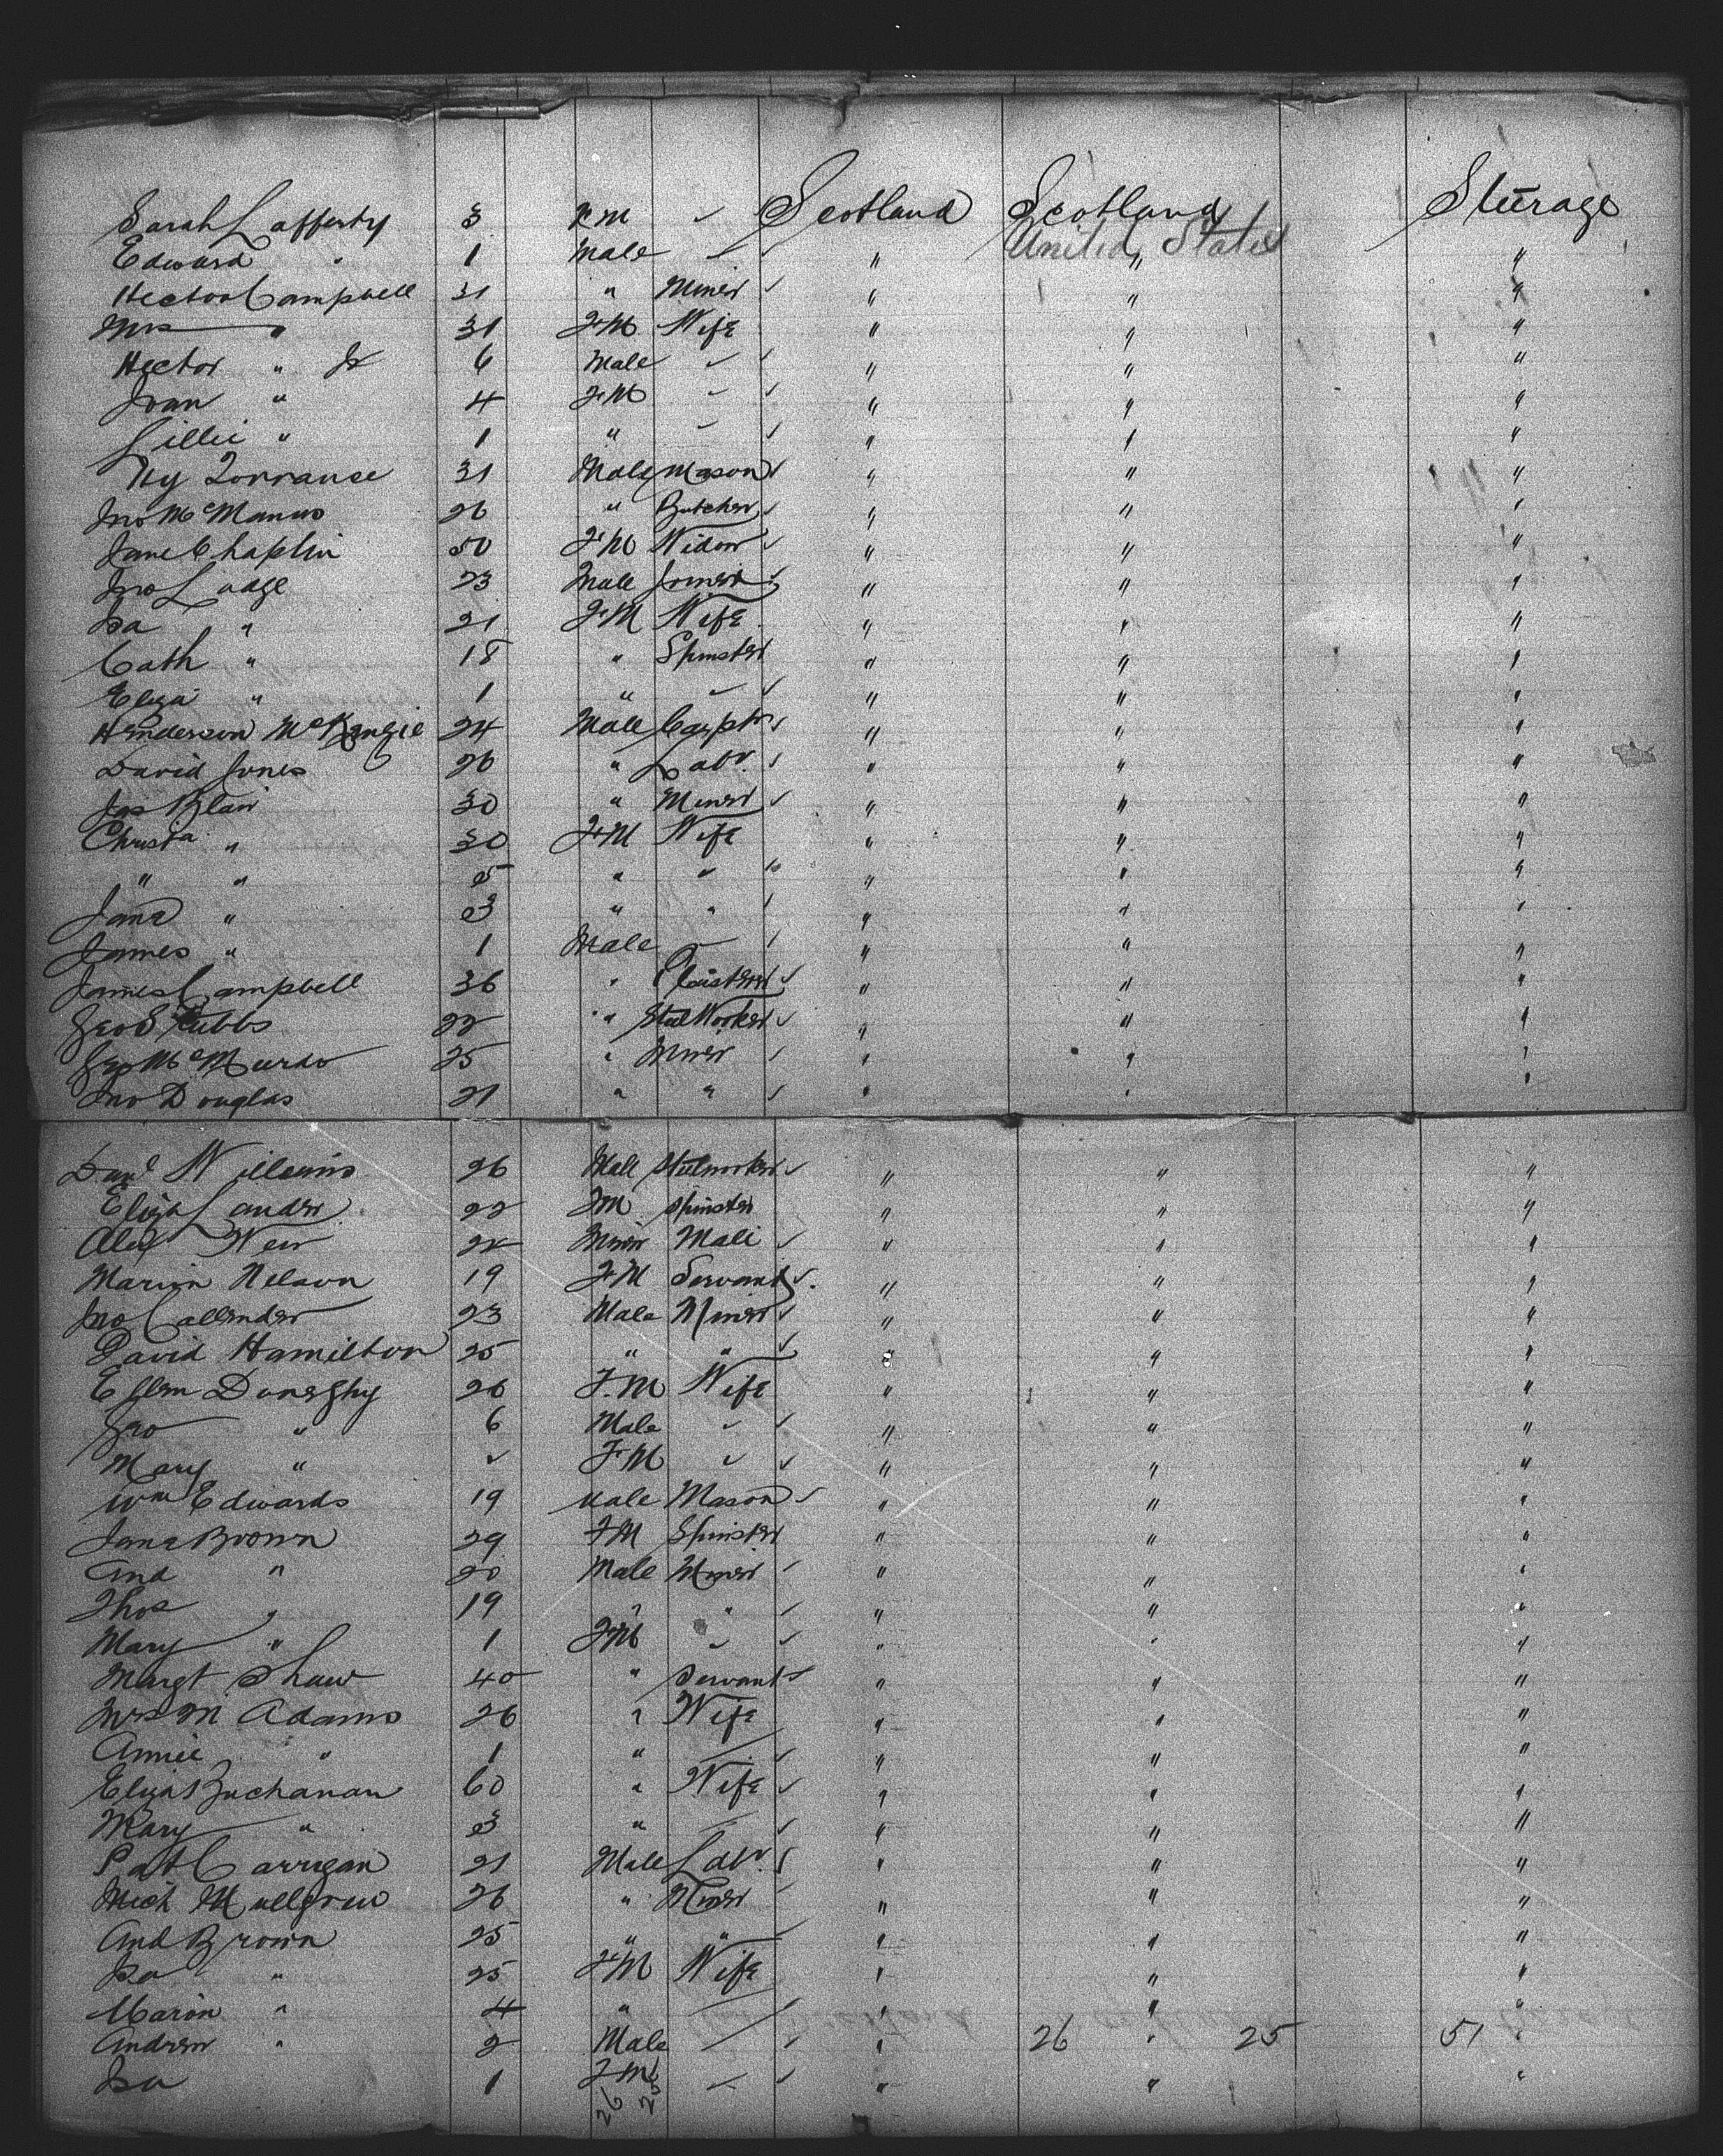 Sarah Lafferty 3 FM ✓ Scotland Scotland Steerage
United States
Edward " 1 Male ✓ " " "
Hector Campbell 31 " Miner ✓ " " "
Mrs " 31 FM Wife " " "
Hector " Jr 6 Male ✓ " " "
Joan " 4 FM ✓ " " "
Lillie " 1 " ✓ " " "
Hy Torrance 31 Male Mason ✓ " " "
Jno McManus 26 " Butcher ✓ " " "
Jane Chaplin 50 FM Widow ✓ " " "
Jno Lodge 23 Male Joiner ✓ " " "
Isa " 21 FM Wife " " "
Cath " 18 " Spinster " " "
Eliza " 1 " ✓ " " "
Henderson McKenzie 24 Male Carptr ✓ " " "
David Jones 26 " Labr ✓ " " "
Jas Blair 30 " Miner ✓ " " "
Christa " 30 FM Wife " " "
" " 5 " " " " "
Jane " 3 " " " " "
James " 1 Male " " "
James Campbell 36 " Plaisterer ✓ " " "
Geo Stubbs 22 " Steel Worker ✓ " " "
Geo McMurdo 25 " Miner ✓ " " "
Jno Douglas 21 " " ✓ " " "
Danl Williams 26 Male Steelworker ✓ " " "
Eliza Lander 22 FM Spinster " " "
Alex Weir 24 Miner Male ✓ " " "
Marion Nelson 19 FM Servant ✓ " " "
Jno Callender 23 Male Miner ✓ " " "
David Hamilton 25 " " ✓ " " "
Ellen Doneghy 26 F.M Wife " " "
Geo " 6 Male ✓ " " "
Mary " ✓ FM ✓ " " "
Wm Edwards 19 Male Mason ✓ " " "
Jane Brown 29 FM Spinster " " "
And " 20 Male Miner ✓ " " "
Thos " 19 " " ✓ " " "
Mary " 1 FM ✓ " " "
Margt Shaw 40 " Servant ✓ " " "
Mrs M Adams 26 " Wife " " "
Annie " 1 " ✓ " " "
Eliza Buchanan 60 " Wife ✓ " " "
Mary " 3 " ✓ " " "
Pat Carrigan 21 Male Labr. " " "
Mich Mullgrew 26 " Miner " " "
And Brown 25 " " " " "
Isa " 25 FM Wife " " "
Marion " 4 " ✓ " " "
Andrew " 2 Male ✓ " 26 " 25 51 "
Isa 1 FM ✓ " " "
26 25